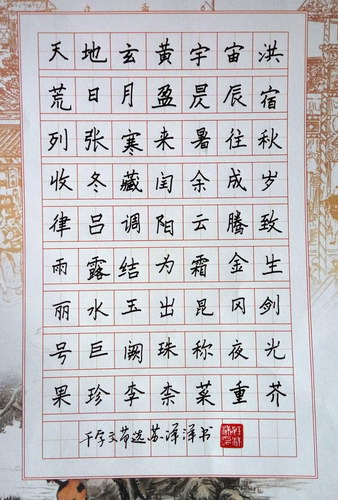 天地玄黄宇宙洪
荒日月盈昃辰宿
列张寒来暑往秋
收冬藏闰余成岁
律吕调阳云腾致
雨露结为霜金生
丽水玉出昆冈剑
号巨阙珠称夜光
果珍李柰菜重芥
千字文节选苏洋洋书